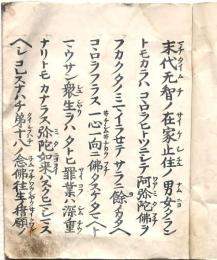 末代无智ノ在家止住ノ男女タラン
トモカラハコヽロヲヒトツニシテ阿弥陀佛ヲ
フカクタノミマイラセテサラニ餘ノカタヘ
コヽロヲフラス一心一向ニ佛タスケタマヘト
マウサン衆生ヲハタトヒ罪業ハ深重
ナリトモカナラス弥陀如来ハスクヒマシマス
ヘシコレスナハチ第十八ノ念佛往生ノ誓願ノ